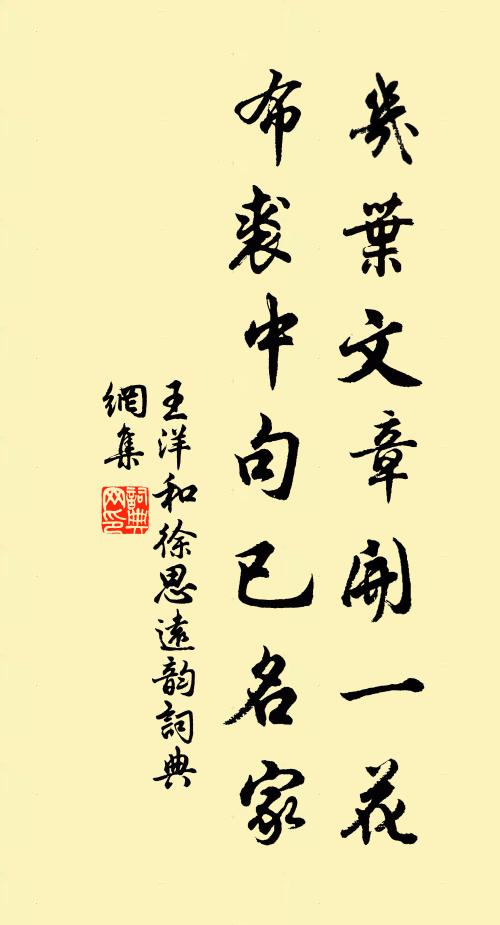 幾葉文章開一花
布裘中句已名家
王洋和徐思遠韵詞典
網集
詞典
网印